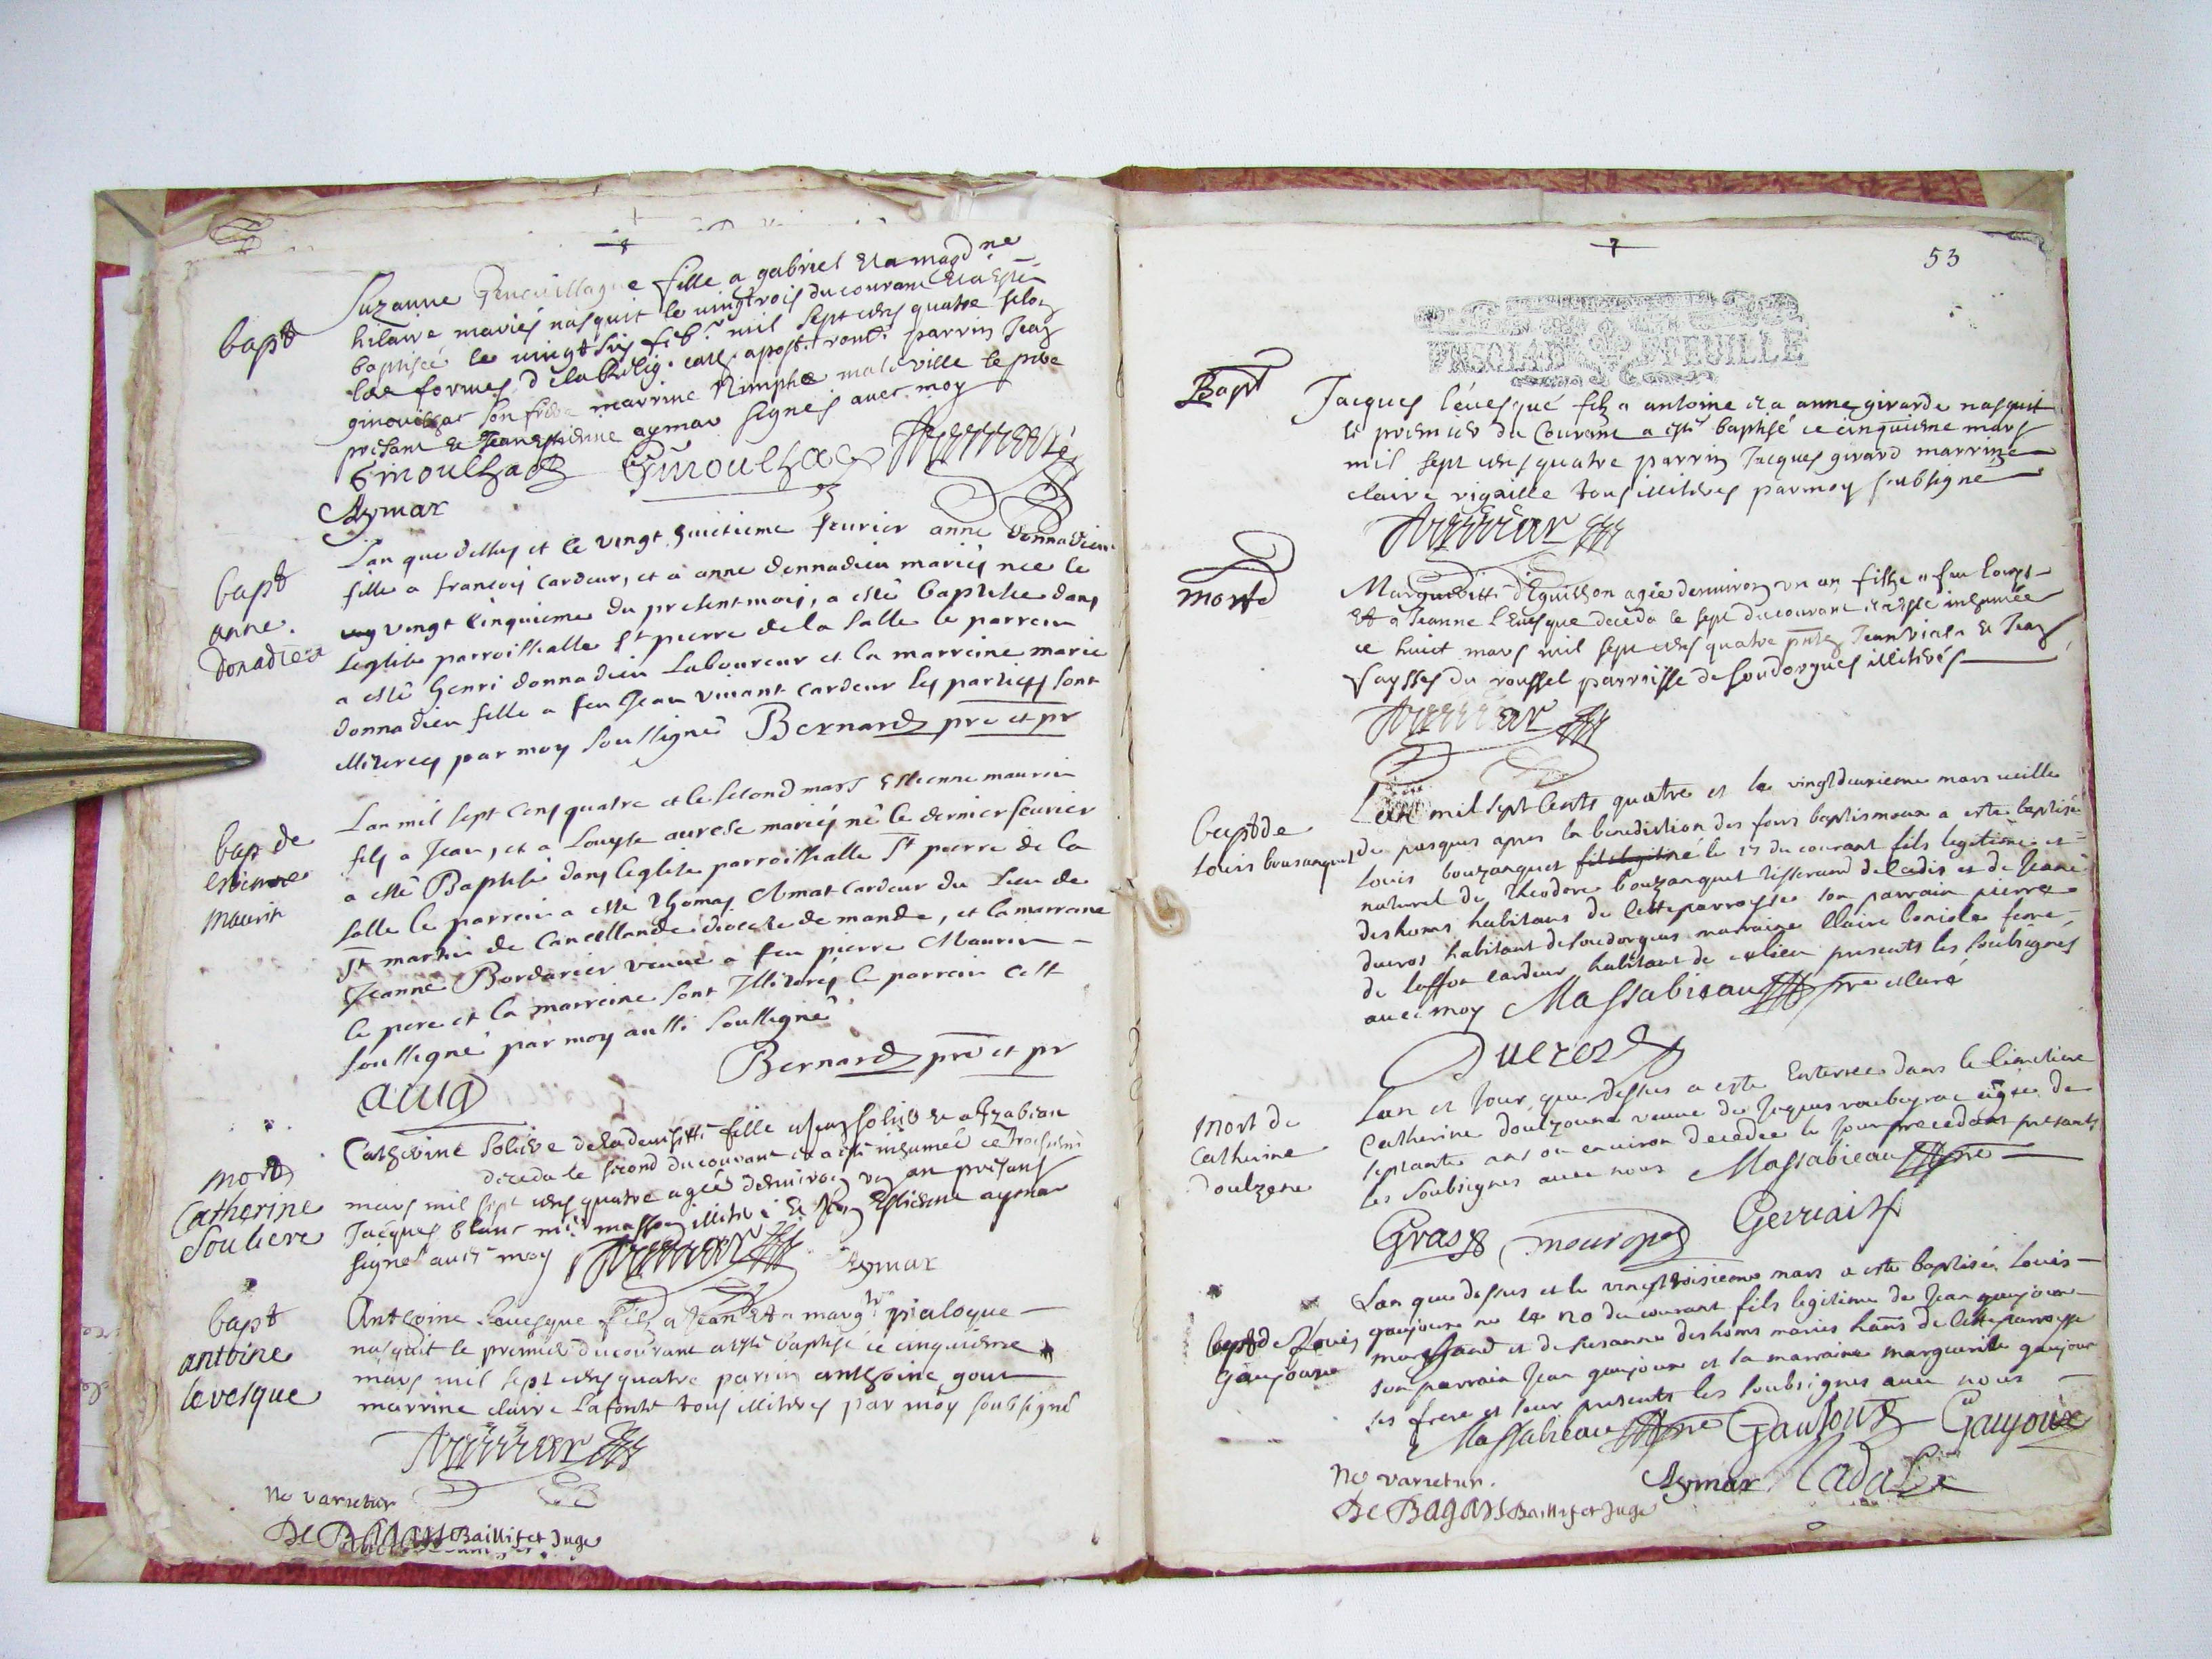 bapt
Suzanne Ginouillague fille a gabriel et a magdne
hilaire mariés nasquit le vingtrois du courant et a esté
baptisée le vingt six febr mil sept cens quatre selon
les formes de la Relig. cath. apost. rom. parrin Jean
ginouilhac son frere marrine Nimphe malaville le pere
présant et Jean estienne aymar signés avec moy
Ginoulhac Ginoulhac
Aymar
bapt
anne
donadieu
L'an que dessus et le vingt huictieme feurier anne donnadieu
fille a francois cardeur, et a anne donnadieu mariés nee le
vingt cinquieme du present mois, a esté baptisée dans
l'eglise parroissialle St pierre de la salle le parrein
a esté henri donnadieu laboureur et la marreine marie
donnadieu fille a feu Jean vivant cardeur les parties sont
illiterees par moy soussigné Bernard pre et pr
bap de
estienne
maurin
L'an mil sept cens quatre et le second mars Estienne maurin
fils a Jean, et a Louyse aurese mariés né le dernier feurier
a esté Baptisé dans l'eglise parroissialle St pierre de la
salle le parrein a esté thomas Amat cardeur du lieu de
St martin de Cancellande diocese de mande, et la marreine
Jeanne Bordarier veuue a feu pierre Maurin
le pere et la marreine sont Illiterés le parrein cest
soussigné par moy aussi soussigné
Bernard pre et pr
amd
mort
Catherine
Souliere
Catherine Soliere fille a Jean solier et a Yzabeau
deceda le second du courant et a esté inhumée ce troisieme
mars mil sept cens quatre agée denuiron un an présans
Jacques blanc me masson illitéré et Jean Estienne aymar
signé avec moy
Aymar
bapt
antoine
levesque
Anthoine Leuesque filz a Jean et a margte pialogue
nasquit le premier du courant a esté baptisé ce cinquiesme
mars mil sept cens quatre parrin anthoine gout
marrine claire Lafonte tous illitérés par moy soubsigné
Ne varietur
De Bagars Baillif et Juge
53
Bapt
Jacques léuesque filz a antoine et a anne girarde nasquit
le premier du Courant a esté baptisé ce cinquiesme mars
mil sept cens quatre parrin Jacques girard marrine
claire rigaille tous illitérés par moy soubsigné
morte
Margueritte d'Eguilhon agée denuiron un an filhe a feu Louys
Et a Jeanne l'Euesque deceda le sept du courant et a esté inhumée
ce huict mars mil sept cens quatre Jean viala et Jean
faysses du roussel parroisse de soudorgues illitérés
bapt de
Louis bousanquet
L'an mil sept cents quatre et le vingtdeuxieme mars veille
de pasques apres la benediction des fons baptismaux a este baptisé
Louis bouzanquet fils legitime le 17 du courant fils legitime et
naturel de Theodore bouzanquet tisserand de cadis et de Jeane
deshons habitans de cette parroysse son parrain pierre
ducros habitant de soudorgues marraine Claire boniole feme
de cardeur habitant de ce lieu presents les soubsignés
auec moy Massabieau pre et curé
Ducros
Mort de
Catherine
doulzene
L'an et Jour que dessus a este Enterree dans le Cimetiere
Catherine doulzoune veuue de Jaques roubeyrac agée de
septante ans ou enuiron decedee le Jour precedant presants
les soubsignes auec nous Massabieau pre
Gras mouropes Gervais
bapt de Louis
gaujoux
L'an que dessus et le vingttroisieme mars a este baptisé Louis
gaujoux né le 20 du courant fils legitime de Jean gaujoux
marchand et de susanne deshons maries hans de cette parroysse
son parrain Jean gaujoux et sa marraine marguerite gaujoux
ses frere et seur presents les soubsignes auec nous
Massabieau pre Gaujoux Gaujoux
Aymar Cadalie
Ne varietur.
De Bagars Baillif et Juge